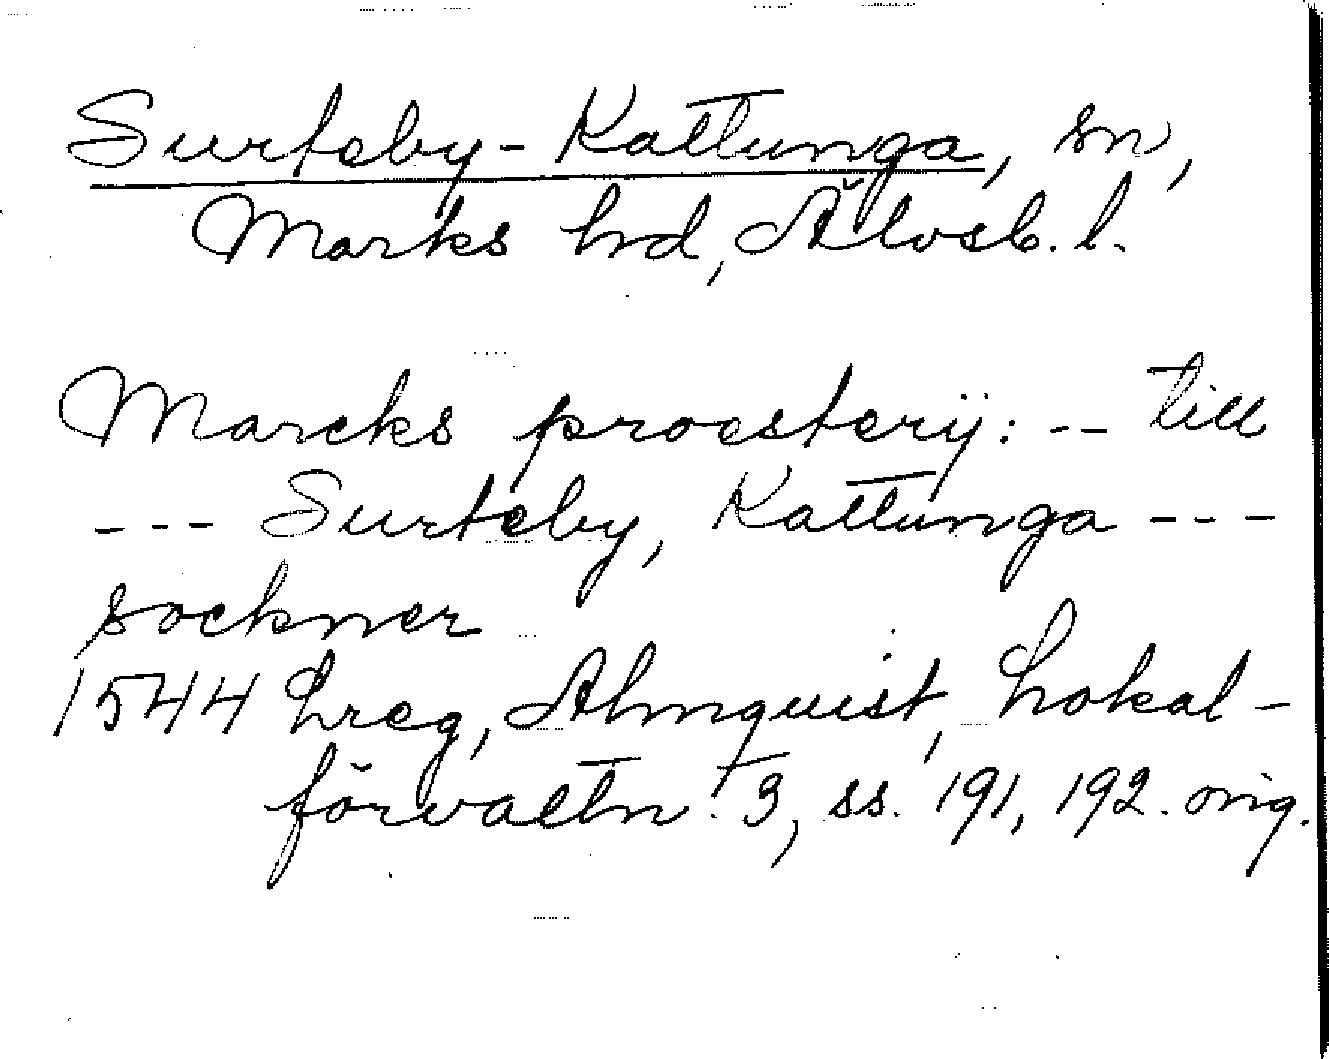 Surteby-Kattunga, sn,
Marks hd, Älvsb. l.
Marcks proestery̋: -- till
--- Surteby, Kattunga ---
sockner
1544 Lreg, Almquist, Lokal-
förvaltn. 3, ss. 191, 192. orig.